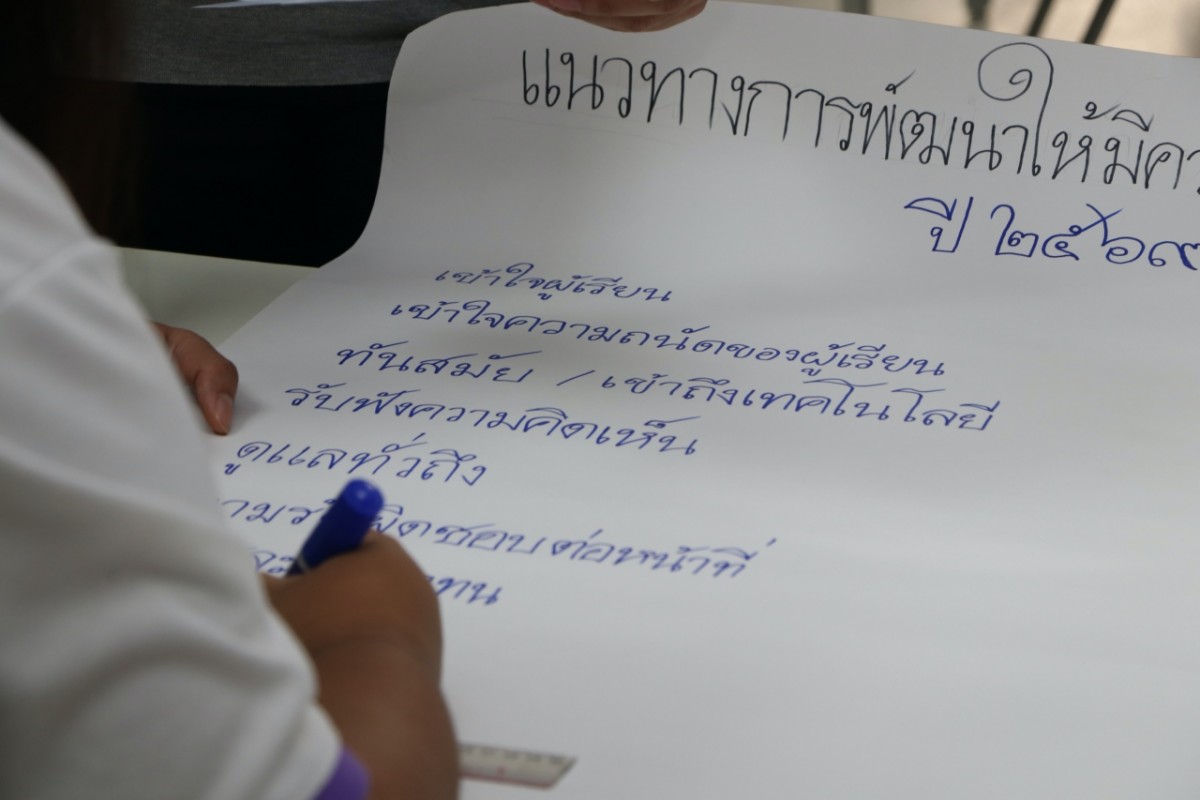 แนวทางการพัฒนาให้มีคว
ปี ๒๕๖๙
เข้าใจผู้เรียน
เข้าใจความถนัดของผู้เรียน
ทันสมัย / เข้าถึงเทคโนโลยี
รับฟังความคิดเห็น
ดูแลทั่วถึง
ชอบ ต่อหน้าที่